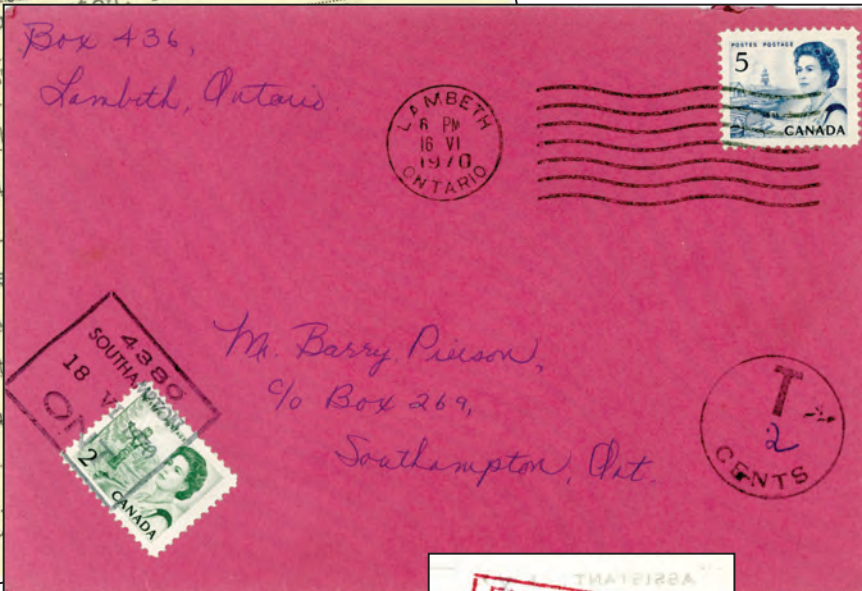 Box 436,
Lambeth, Ontario.
LAMBETH
6 PM
16 VI
1970
ONTARIO
POSTES POSTAGE
5
CANADA
4380
SOUTHAMPTON
18 VI
ONT
2
CANADA
Mr. Barry Pierson,
c/o Box 269,
Southampton, Ont.
T
2
CENTS
ASSISTANT